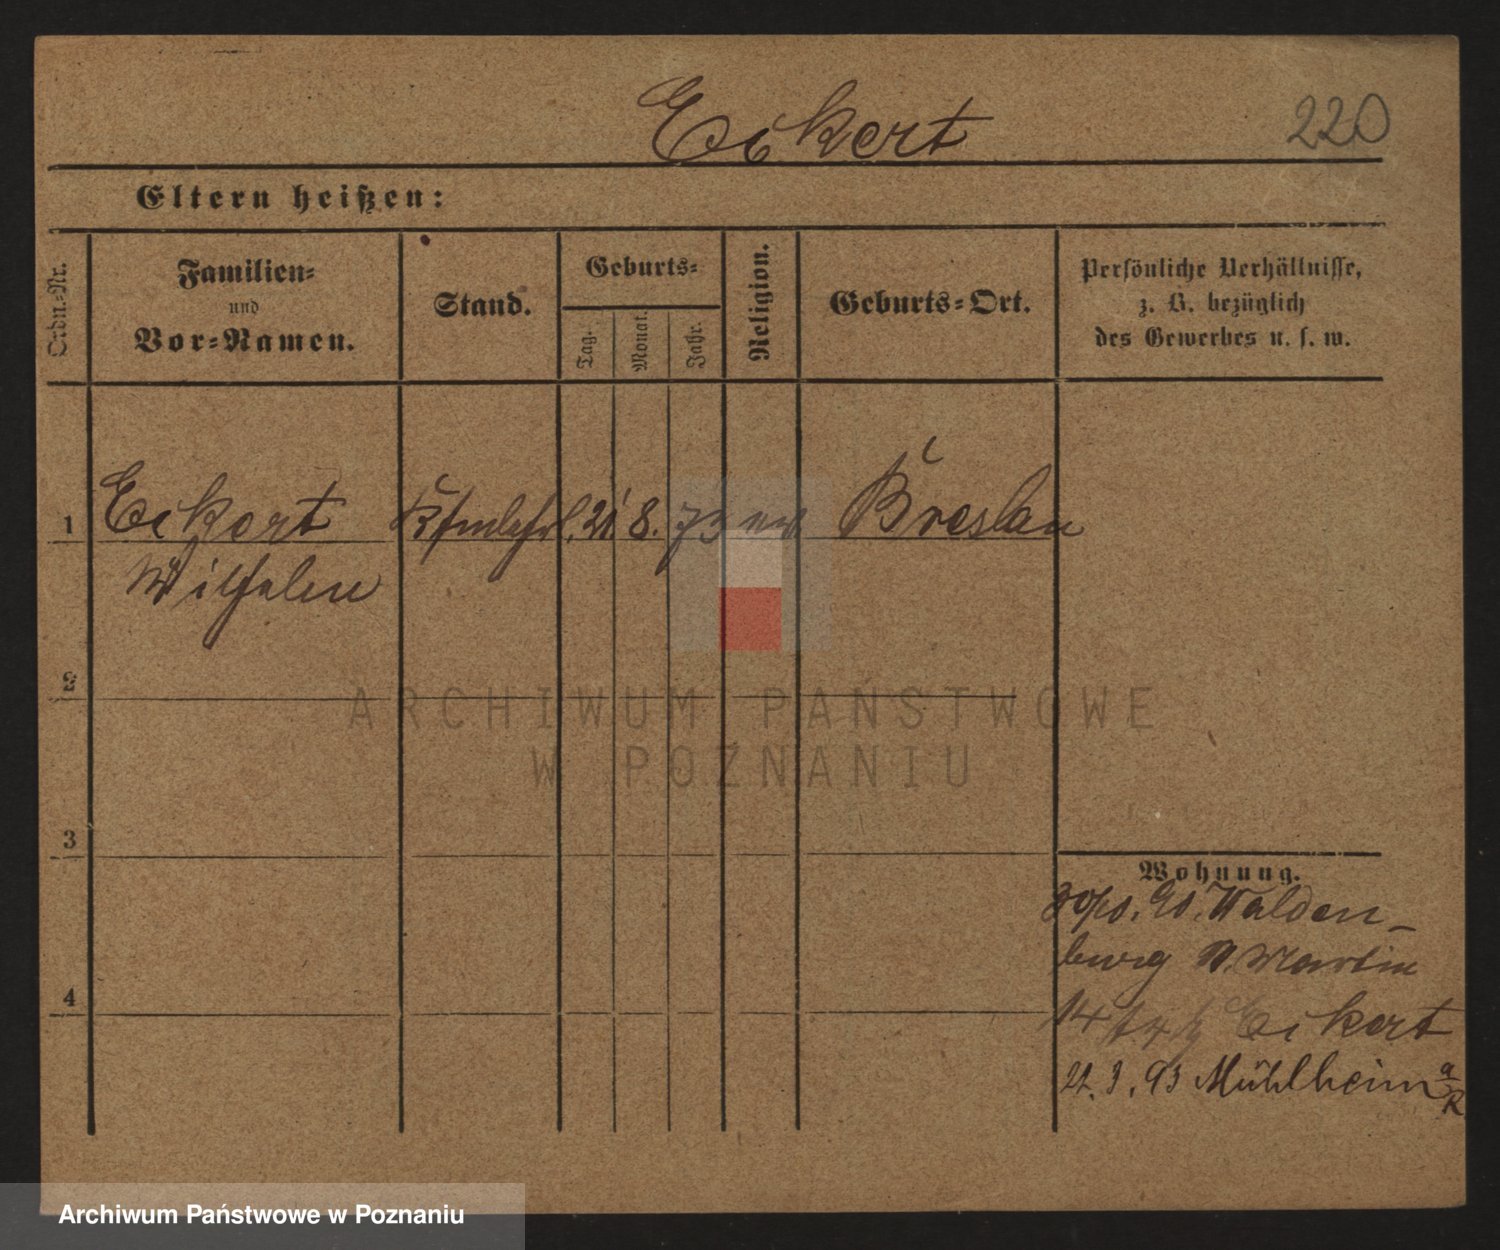 Eckert
220
Eltern heißen:
Ordn.-Nr.
Familien-
und
Vor-Namen.
Stand.
Geburts-
Tag.
Monat.
Jahr.
Religion.
Geburts-Ort.
Persönliche Verhältnisse,
z. B. bezüglich
des Gewerbes u. s. w.
1 Eckert Kfmlehrl. 21 8. 73 Breslau
Wilhelm
2
3
4
Wohnung.
Walden-
burg Martin
14 Eckert
22. 3. 93 Mühlheim a/R
ARCHIWUM PAŃSTWOWE
W POZNANIU
Archiwum Państwowe w Poznaniu